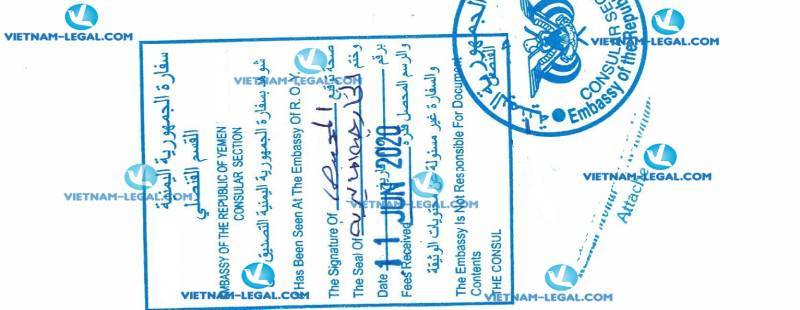 سفارة الجمهورية اليمنية
القسم القنصلي
EMBASSY OF THE REPUBLIC OF YEMEN
CONSULAR SECTION
شوهد بسفارة الجمهورية اليمنية التصديق
Has Been Seen At The Embassy Of R. O. Y.
صحة توقيع
The Signature Of
وختم
The Seal Of
برقم
Date 11 JUN 2020
والرسم المحصل قدره
Fees Received
والسفارة غير مسئولة عن محتويات الوثيقة
The Embassy Is Not Responsible For Document
Contents
THE CONSUL
CONSULAR SEC
Embassy of the Repub
Attache
VIETNAM-LEGAL.COM
VIETNAM-LEGAL.COM
VIETNAM-LEGAL.COM
VIETNAM-LEGAL.COM
VIETNAM-LEGAL.COM
VIETNAM-LEGAL.COM
VIETNAM-LEGAL.COM
VIETNAM-LEGAL.COM